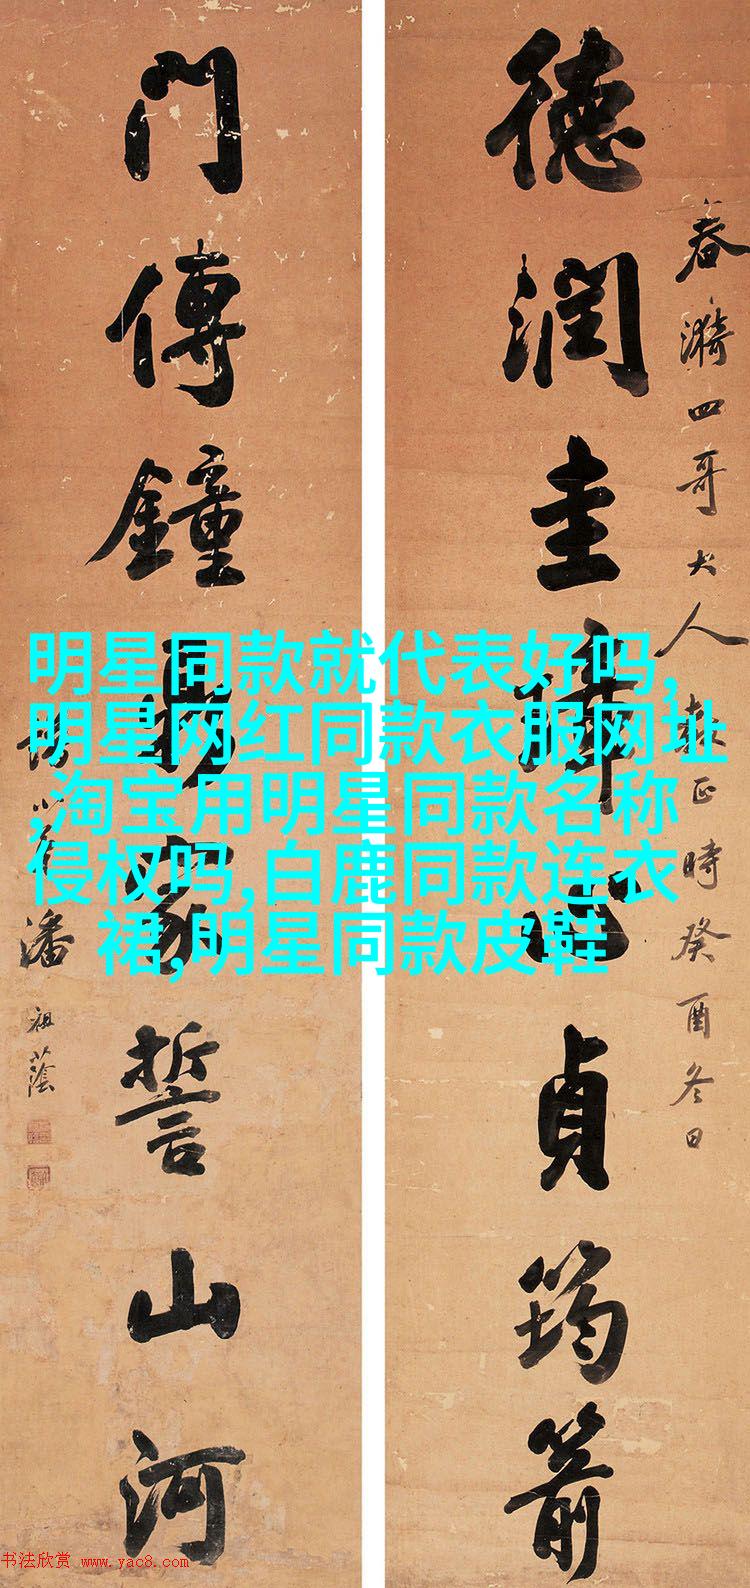 春漪四哥大人雅正時癸酉冬日
德潤圭璋心貞筠箭
門傳鐘鼎家誓山河
潘祖蔭
明星同款就代表好吗,
明星网红同款衣服网址
,淘宝用明星同款名称
侵权吗,白鹿同款连衣
裙,明星同款皮鞋
书法欣赏 www.yac8.com